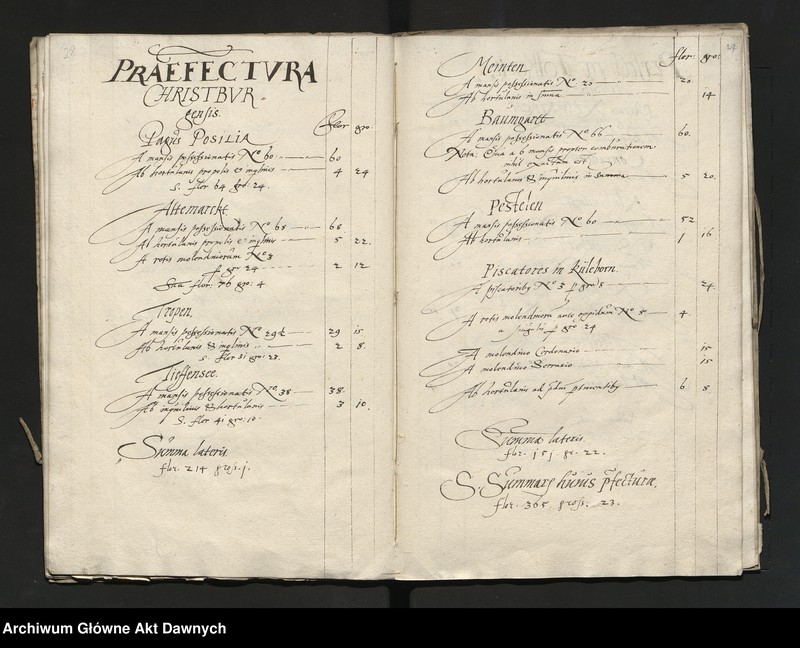 28
PRAEFECTVRA
CHRISTBVR
gensis.
Flor gro:
Pagus POSILIA
A mansis possessionatis No 60 60
Ab hortulanis propriis et inqlinis 4 24
S. flor 64 gro: 24.
Altemarckt
A mansis possessionatis No 68 68
Ab hortulanis propriis et inqlinis 5 22.
A rotis molendinorum No 3
p gr 24 2 12
Sua flor: 76 gro: 4
Tropen.
A mansis possessionatis No 29½ 29 15
Ab hortulanis et inqlinis 2 8.
S. flor 31 gro: 23.
Tieffensee.
A mansis possessionatis No. 38 38.
Ab inquilinis & hortulanis 3 10.
S. flor 41 gro: 10.
Summa lateris.
flor. 214 gross. 1.
29
flor: gro:
Meinten
A mansis possessionatis No 20 20
Ab hortulanis in suma 14
Baumgartt
A mansis possessionatis No 66 60.
Nota: Qua a 6 mansis propter combustionem
nihil exactum est.
Ab hortulanis & inquilinis in summa 5 20.
Pestelen
A mansis possessionatis No 60 52
Ab hortulanis 1 16
Piscatores in Kuleborn.
A piscatoribq No 3 p gro 8 24
A rotis molendinorum ante oppidum No 5 4.
a singulis p gro 24
A molendino Cerdonario 15
A molendino Serrario 15
Ab hortulanis ad idem ptinentibq 6 8
Summa lateris.
flor. 151 gr. 22.
S. Summarq huius pfecturae.
flor. 365 gross. 23.
Archiwum Główne Akt Dawnych